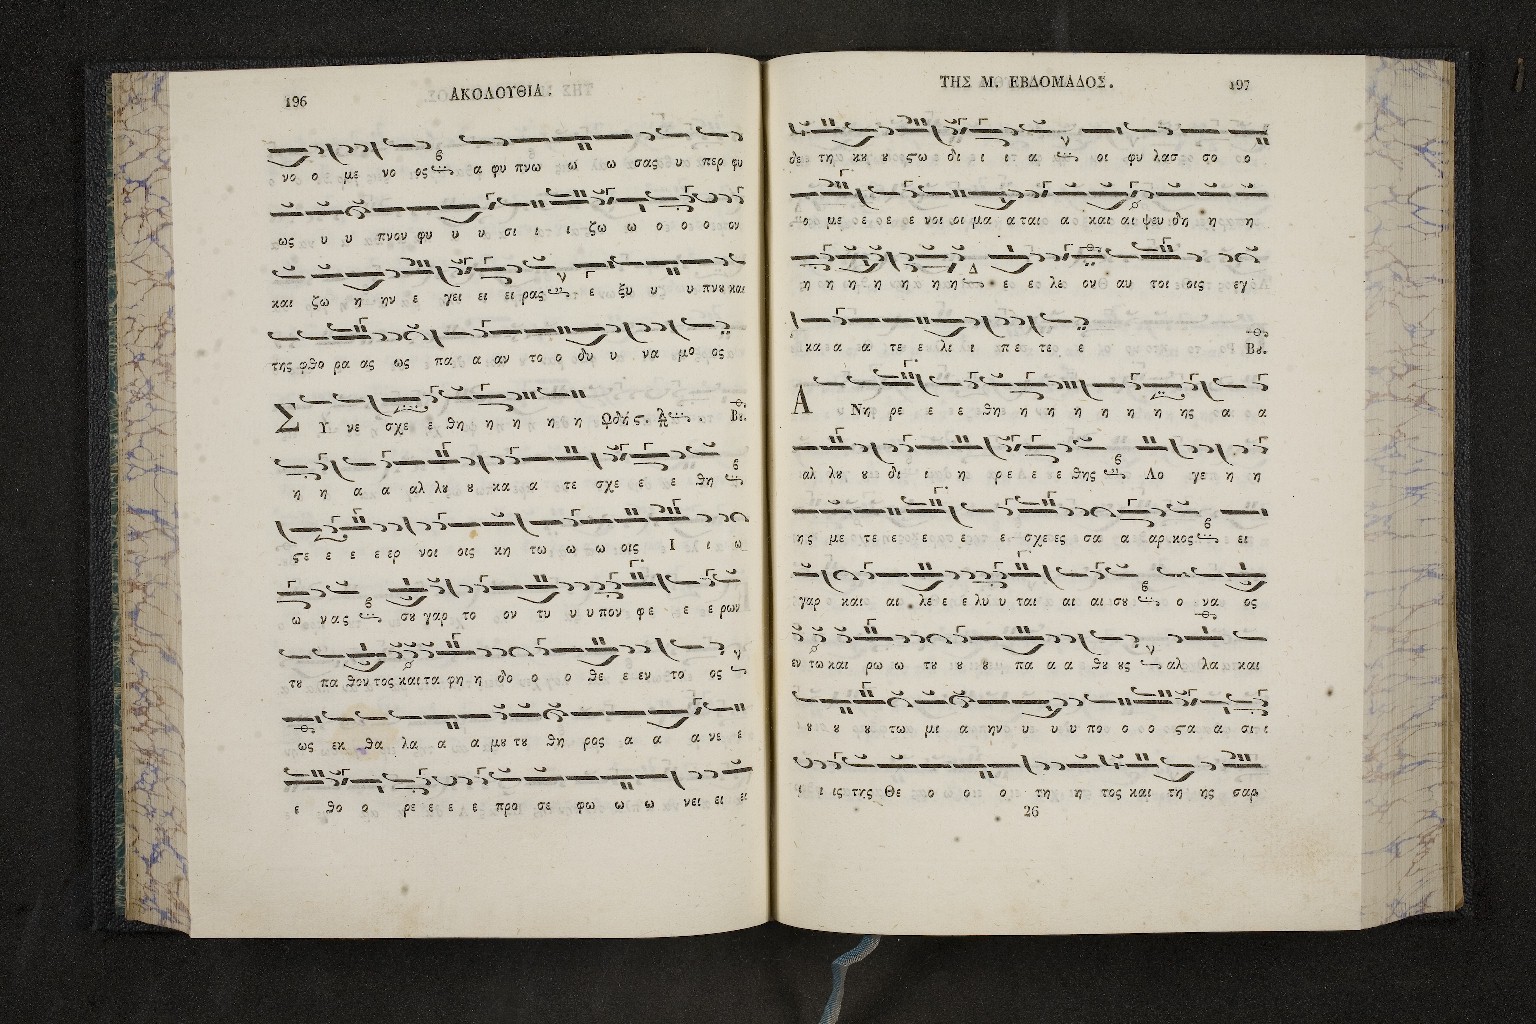 196
ΑΚΟΛΟΥΘΙΑ.
νο ο με νο ος α φυ πνω ω ω σας υ περ φυ
ως υ υ πνον φυ υ υ σι ι ι ζω ω ο ο ο ον
και ζω η ην ε γει ει ει ρας ε ξυ υ υ υ πνȣ και
της φθο ρα ας ως πα α αν το ο δυ υ να μο ος
Συ νε σχε ε θη η η η η Ωδή ς. Βȣ.
η η α α αλ λȣ ȣ κα α τε σχε ε ε θη
ϛε ε ε ε ερ νοι οις κη τω ω ω οις Ι ι ω
ω νας σȣ γαρ το ον τυ υ υ πον φε ε ε ρων
τȣ πα θον τος και τα φη η δο ο ο θε ε εν το ος
ως εκ θα λα α α μȣ τȣ θη ρος α α α νε ε
ε θο ο ρε ε ε ε προ σε φω ω ω νει ει ει
ΤΗΣ Μ. ΕΒΔΟΜΑΔΟΣ.
197
δε τη κȣ ȣ ϛω δι ι ι α οι φυ λασ σο ο
ο με ε ε ε νοι οι μα α ται α και αι ψευ δη η η
η η η η η η η ε ε λε ον αυ τοι οις εγ
κα α α τε ε λι ι πε τε ε Βȣ.
ΑΝη ρε ε ε θη η η η η η η ης α α
αλ λȣ ȣ δι ι η ρε ε ε θης Λο γε η η
ης με τε ε ε ε ε σχε ες σα α αρ κος ει
γαρ και αι λε ε ε λυ υ ται αι αι σȣ ο να ος
εν τω και ρω ω τȣ ȣ ȣ πα α α θȣ ȣς αλ λα και
ȣ ȣ ȣ τω μι α ην υ υ υ πο ο ο ϛα α σι ι
ι ι ις της Θε ο ο ο τη η τος και τη ης σαρ
26